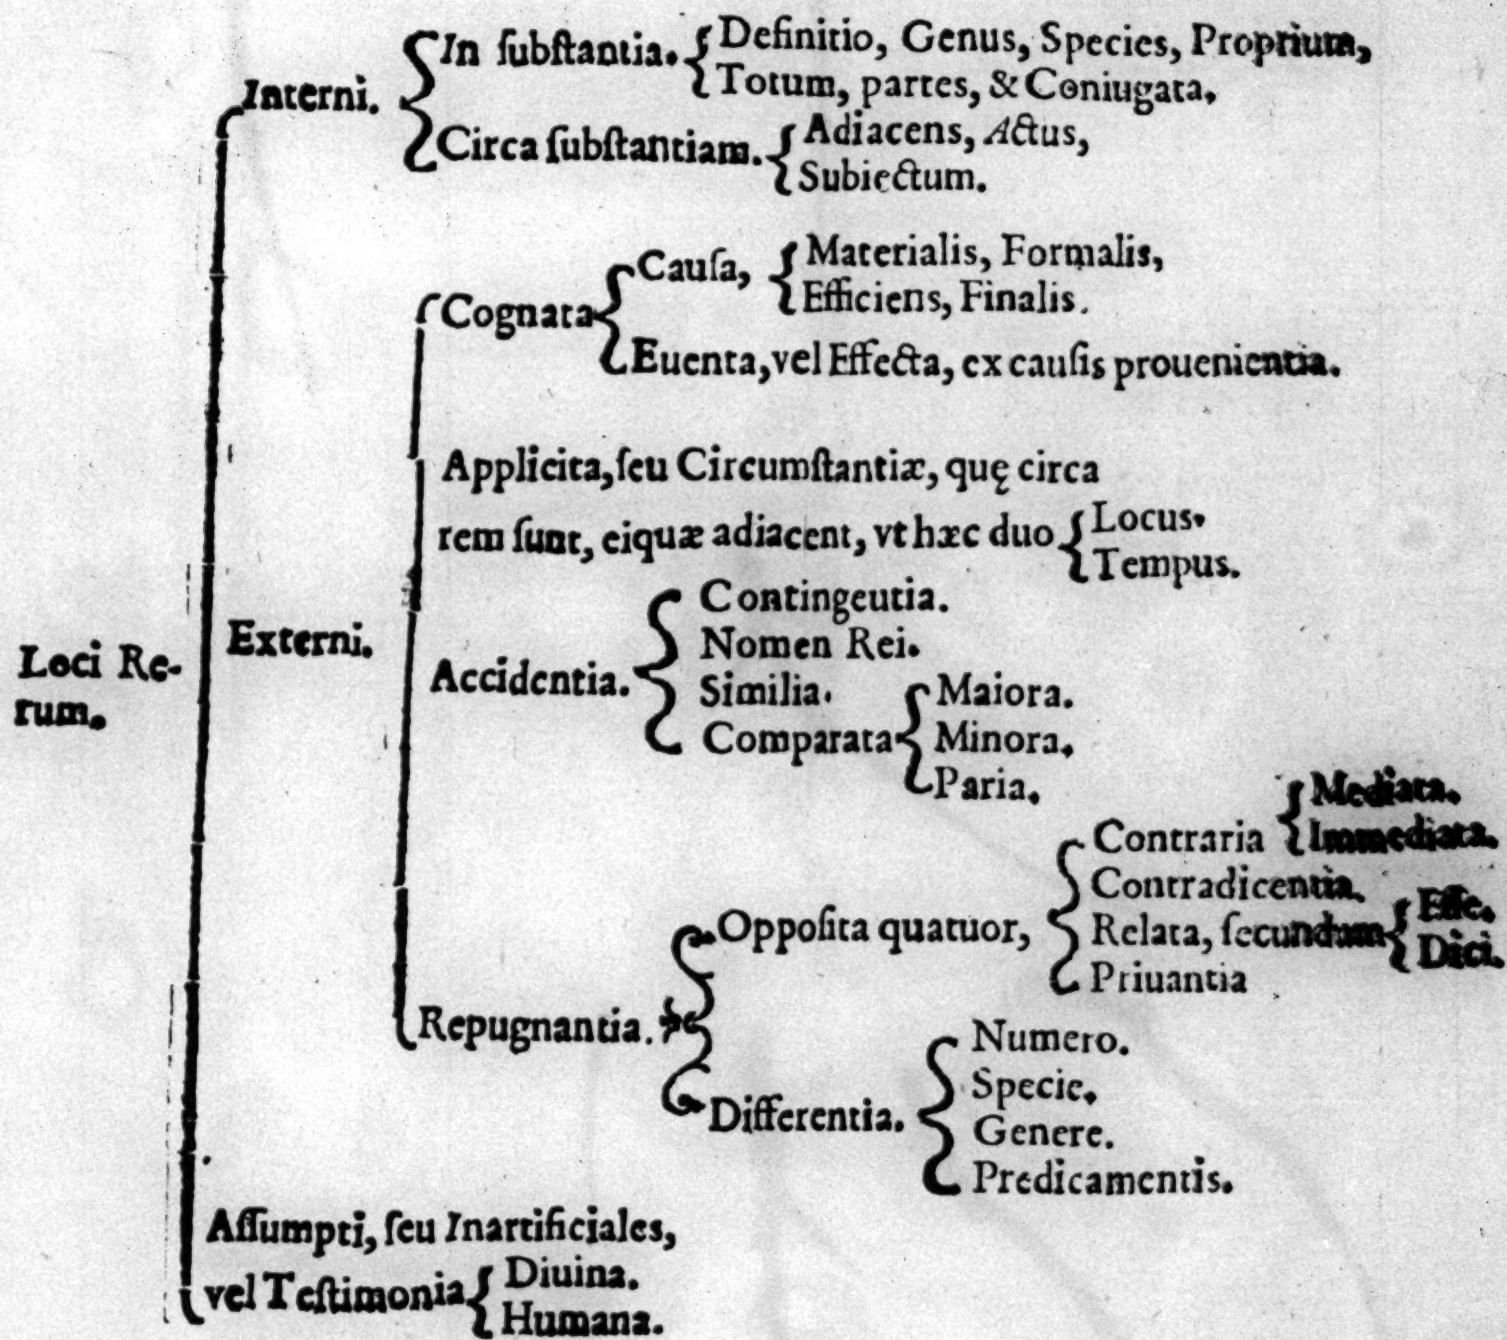 In ſubſtantia. Definitio, Genus, Species, Proprium,
Totum, partes, & Coniugata.
Interni.
Circa ſubſtantiam. Adiacens, Actus,
Subiectum.
Cauſa, Materialis, Formalis,
Efficiens, Finalis.
Cognata
Euenta, vel Effecta, ex cauſis prouenientia.
Applicita, ſeu Circumſtantiæ, quę circa
rem ſunt, eiquæ adiacent, vt hæc duo Locus.
Tempus.
Loci Re-
rum.
Externi.
Accidentia.
Contingeutia.
Nomen Rei.
Similia.
Comparata
Maiora.
Minora.
Paria.
Repugnantia.
Oppoſita quatuor,
Contraria
Mediata.
Immediata.
Contradicentia.
Relata, ſecundum
Eſſe.
Dici.
Priuantia
Differentia.
Numero.
Specie.
Genere.
Predicamentis.
Aſſumpti, ſeu Inartificiales,
vel Teſtimonia Diuina.
Humana.